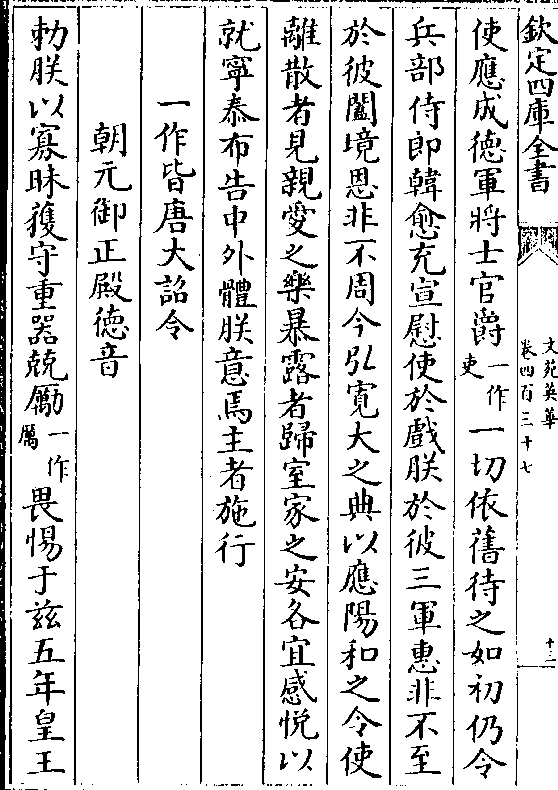 欽定四庫全書
文苑英華
卷四百三十七
十二
使應成德軍將士官爵一作吏一切依舊待之如初仍令
兵部侍郎韓愈充宣慰使於戲朕於彼三軍惠非不至
於彼闔境恩非不周今弘寛大之典以應陽和之令使
離散者見親愛之樂暴露者歸室家之安各宜感悦以
就寧泰布告中外體朕意焉主者施行
一作皆唐大詔令
朝元御正殿德音
勅朕以寡昧獲守重器兢勵一作厲畏惕于兹五年皇王